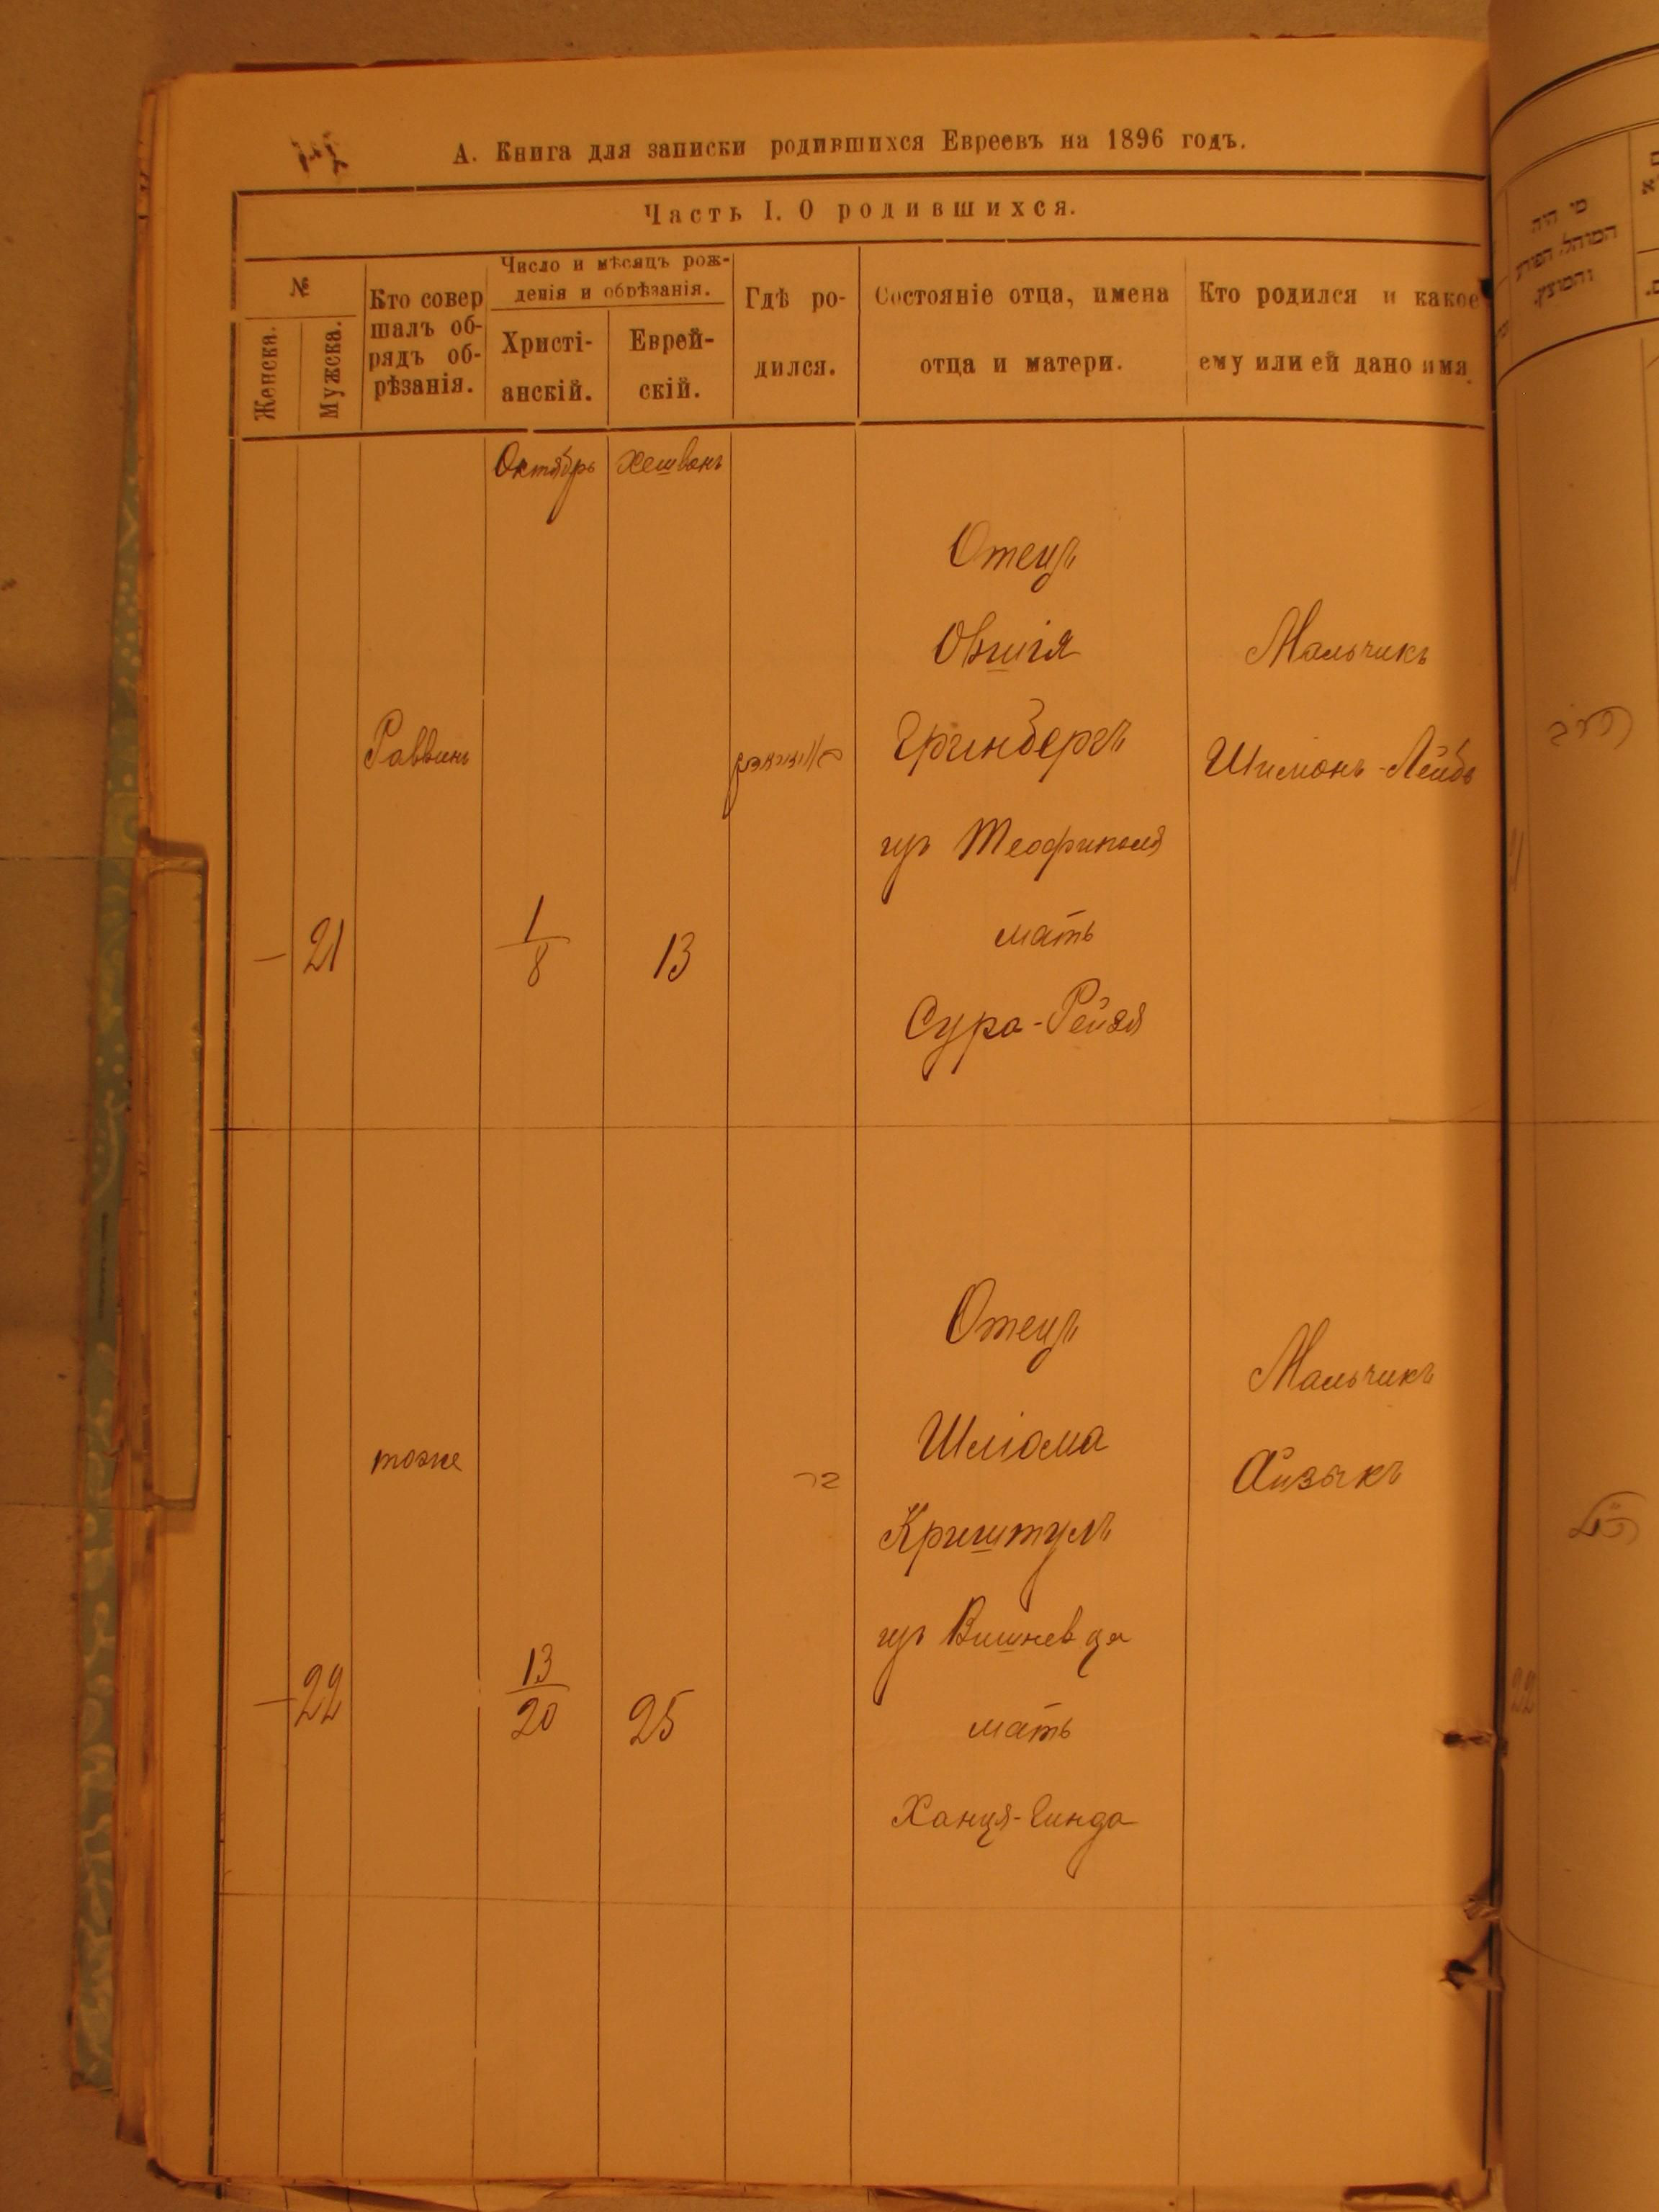 А. Книга для записки родившихся Евреевъ на 1896 годъ.
Часть I. О родившихся.
№
Женска.
Мужска.
Кто совер
шалъ об-
рядъ об-
рѣзанія.
Число и мѣсяцъ рож-
денія и обрѣзанія.
Христі-
анскій.
Еврей-
скій.
Гдѣ ро-
дился.
Состояніе отца, имена
отца и матери.
Кто родился и какое
ему или ей дано имя
Октябрь
Хешвонъ
—
21
Раввинъ
1
8
13
Отецъ
Овшія
Гринбергъ
изъ Теофиполя
мать
Сура-Рейзя
Мальчикъ
Шимонъ-Лейбъ
—
22
тоже
13
20
25
Отецъ
Шліома
Криштулъ
изъ Вишневца
мать
Ханця-Гинда
Мальчикъ
Айзыкъ
מי היה
המוהל הפורע
והמוצץ.
22